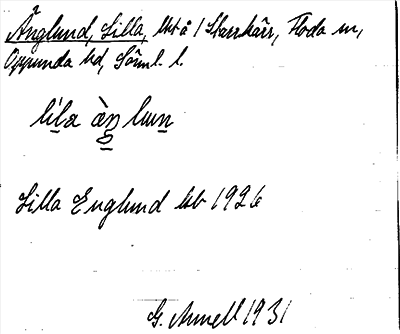 Änglund, Lilla, lht å 1 Starrkärr, Floda sn,
Oppunda hd, Södml. l.
lı̀la àŋ lun
Lilla Englund kb 1926
G. Armell 1931